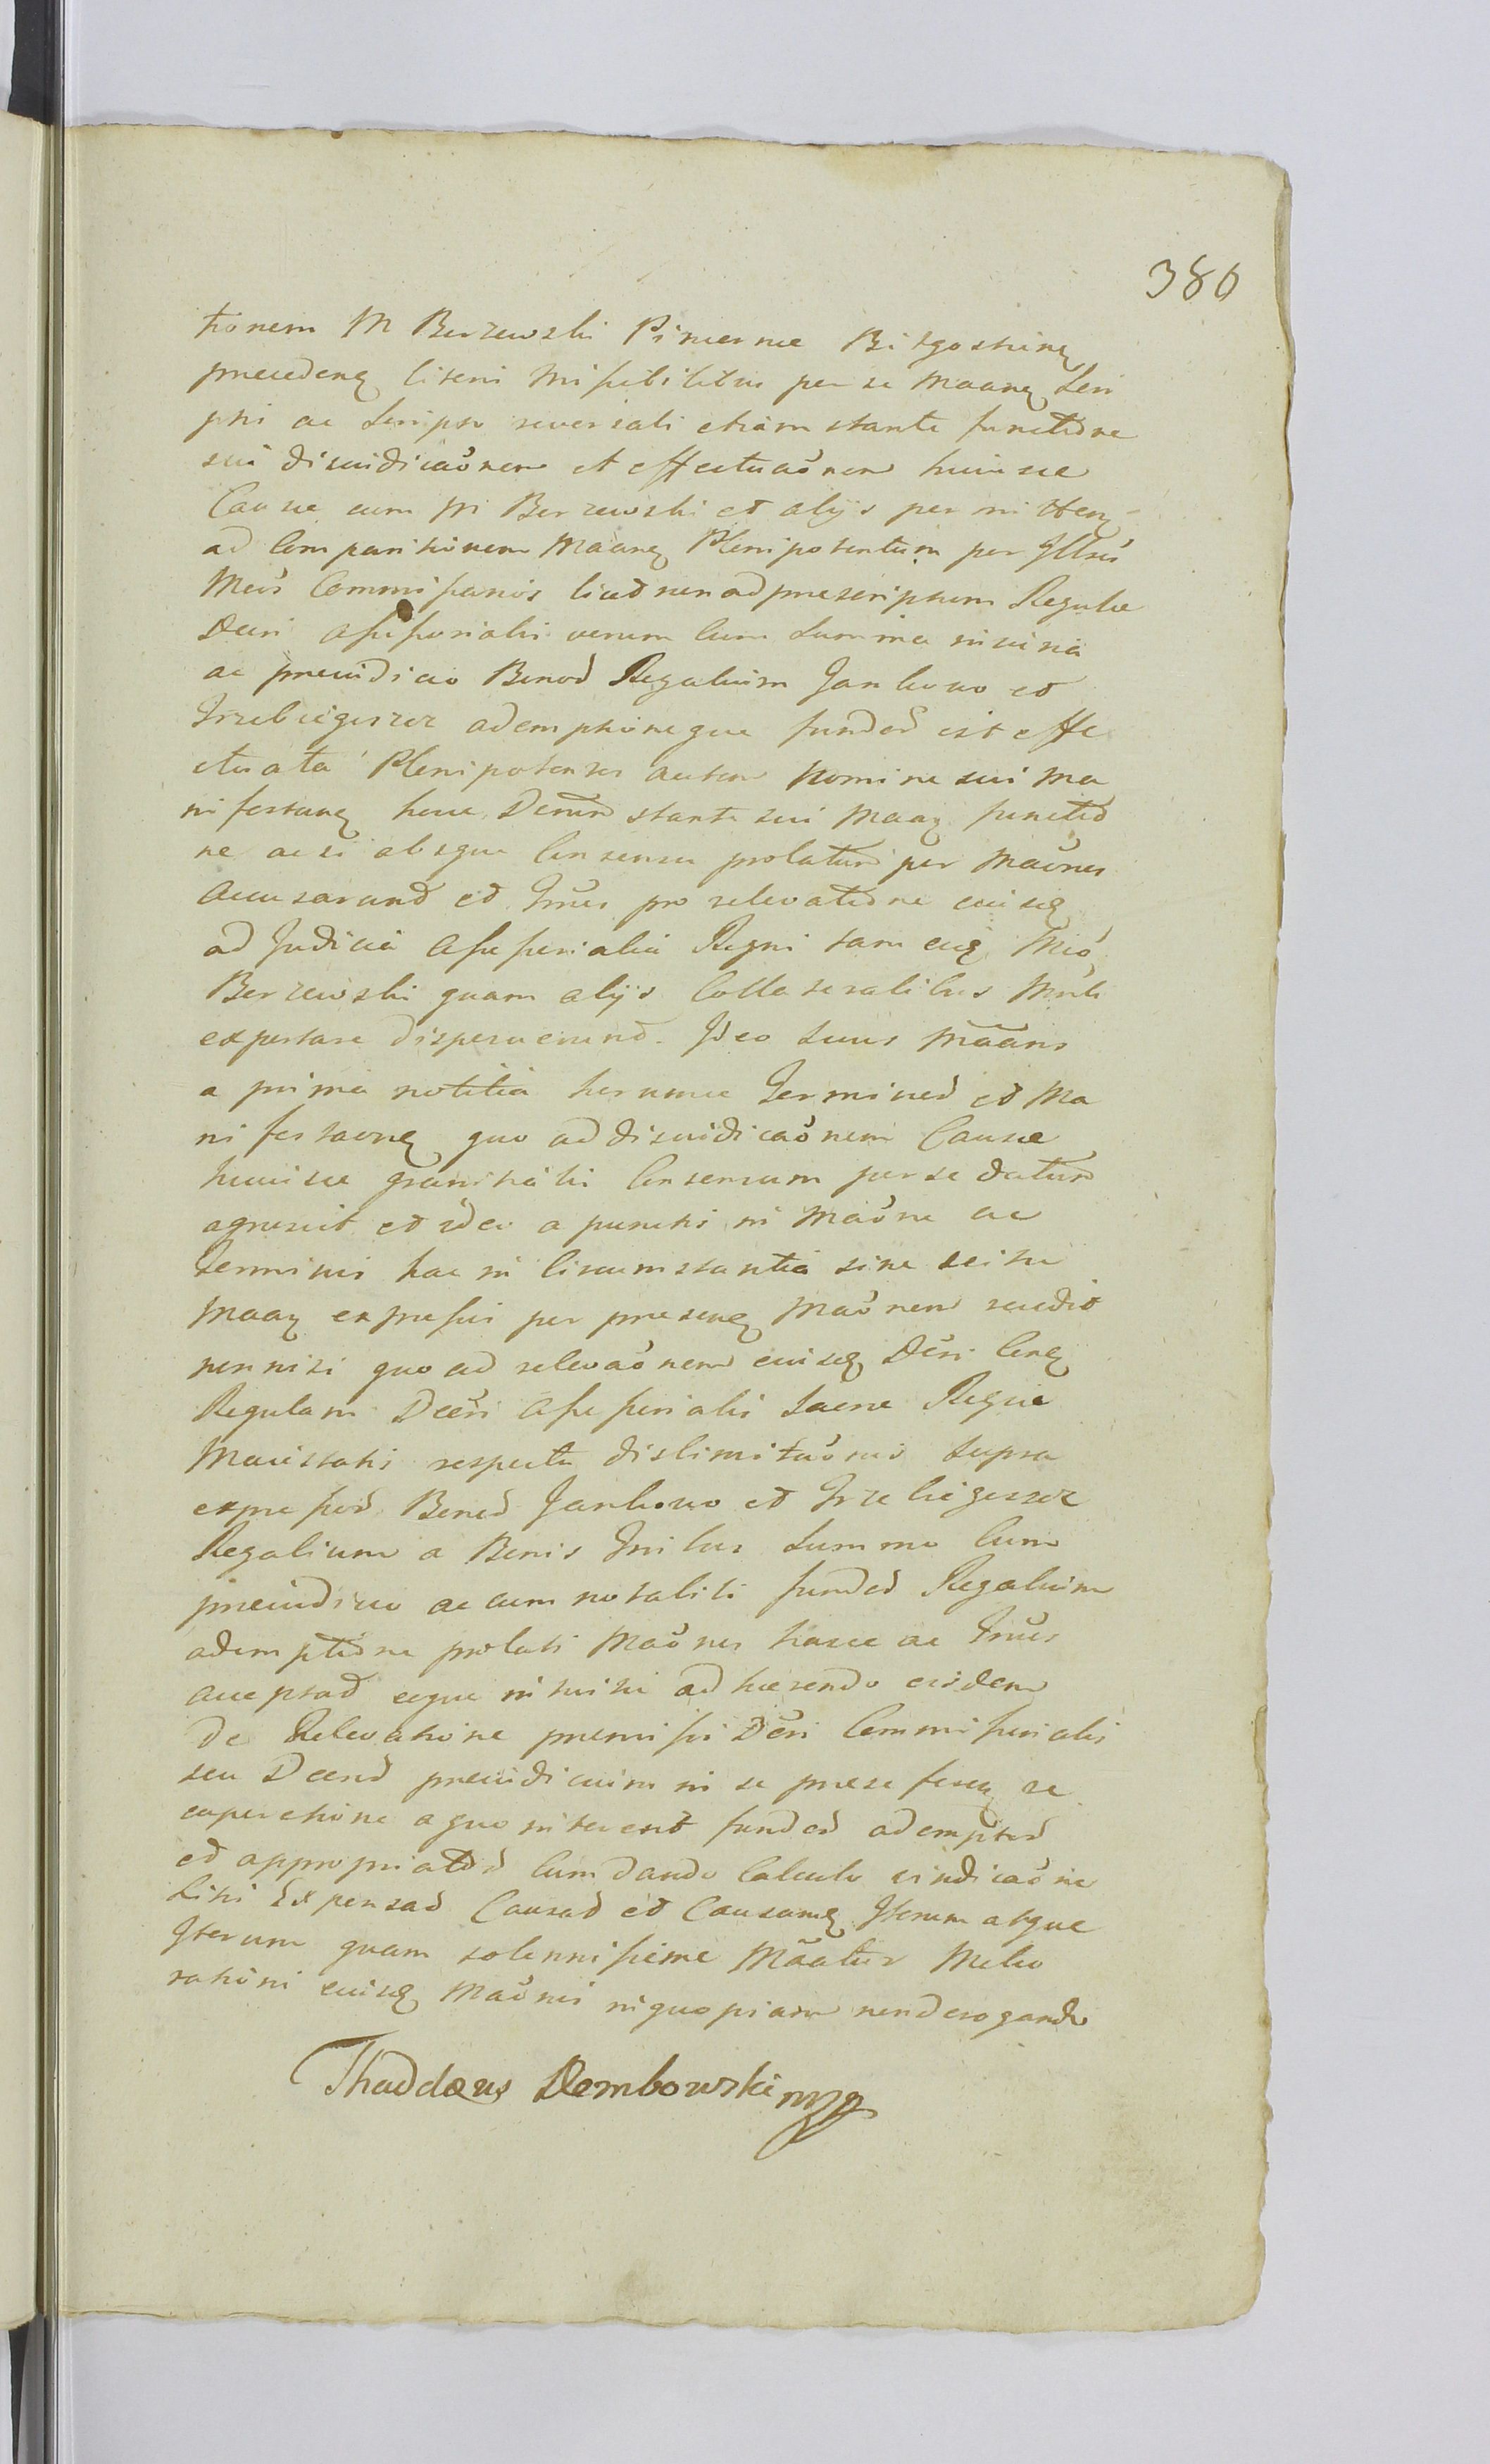 386
tionem M Berzewski Pincernae Bidgostien
praecedenq literis missilibus per se Maanq scri
ptis ac scripto reversali etiam stante functione
sui disiudicaonem et effectuaonem huiusce
Causae cum M Berzewski et alijs permitten
ad Comparitionem Maanq Plenipotentum per Illres
Mcos Commissarios licet non ad praescriptum Regulae
Decri Assessorialis verum cum summa iniuria
ac praeiudicio Bonod Regalium Jankowo et
ademptioneque fundod est effe
ctuata Plenipotentes autem nomine sui ma
nifestanq hocce Decrum stante sui Maanq functio
ne ac si absque Consensu prolatum per Maones
accusarund et Trnos pro relevatione eiusq
ad Judicia Assessorialia Regni tam eiq Mco
Berzewski quam alijs Collateralibus
exportare disposuerund. Ideo suus Maans
a prima notitia horumce Terminod et Ma
nifestaonq quo ad disiudicaonem Causae
huiusce granitialis Consensum per se datum
agnoscit et ideo a punctis in Maone ac
Terminis hac in Circumstantia sine scitu
Maanq expressis per praesenq Maonem recedit
non nisi quo ad relevaonem eiusq Decri Conq
Regulam Decri Assessorialis Sacrae Regiae
Maiestatis respectu dislimitaonis supra
expressod Bonod Jankowo et
Regalium a Bonis Tribus summo cum
praeiudicio ac cum notabili fundod Regalium
ademptione prolati Maones hasce ac Trnos
acceptad eque insistit adhaerendo eisdem
de Relevatione praemissi Decri Commissorialis
seu Decrod praeiudicium in se prae se ferenq re
cuperatione a quo interest fundod ademptod
et appropriatod Cum dando Calculo vindicaone
Litis Expensad Causad et Causanq Iterum atque
Iterum quam solennissime Maatur Melio
rationi eiusq Maonis in quopiam non derogando
Thaddaeus Dembowski mpp